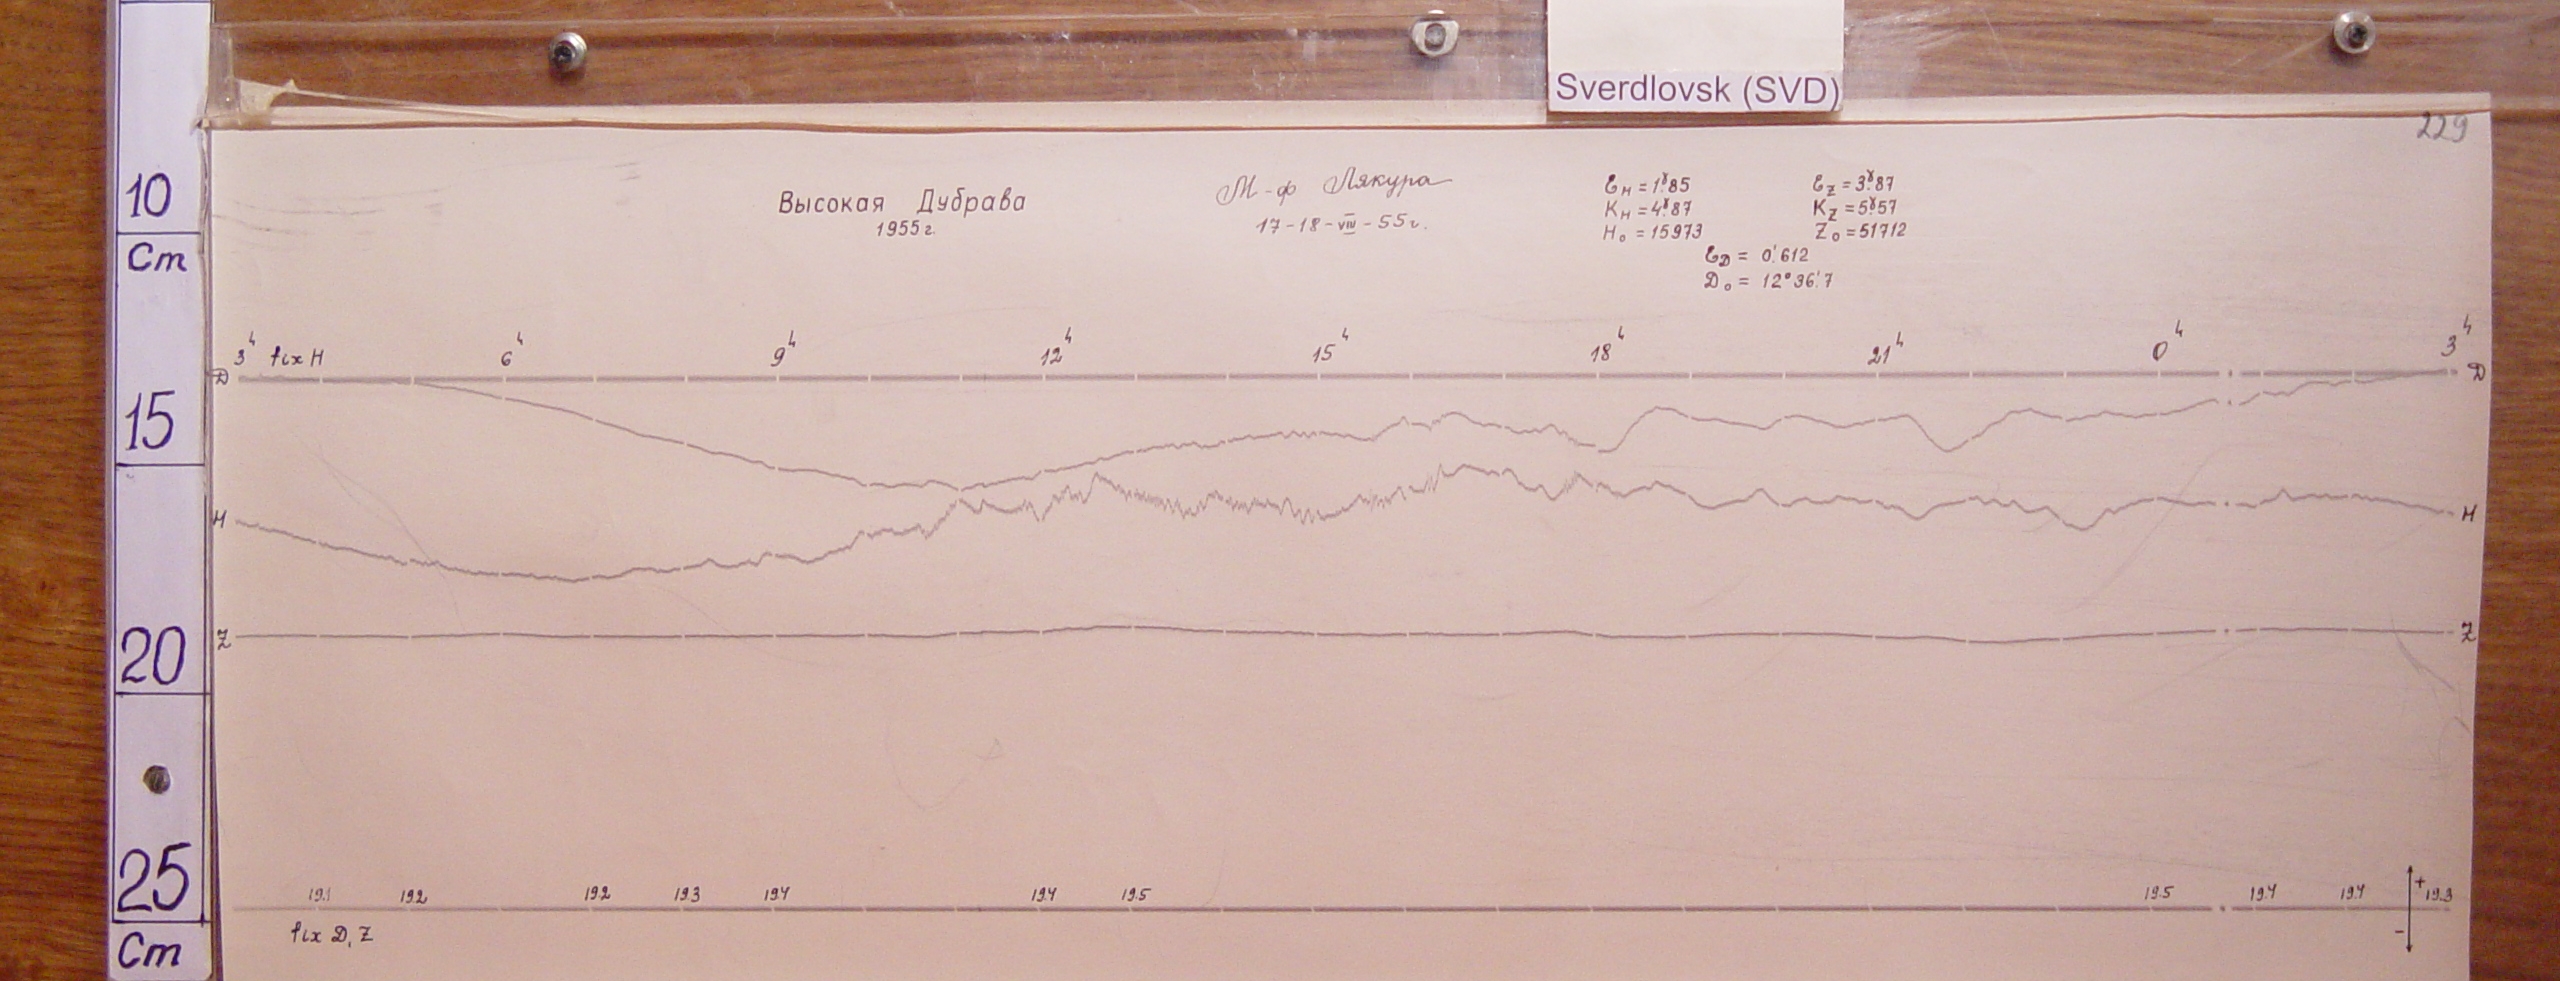 Sverdlovsk (SVD)
229
10
Cm
15
20
25
Cm
Высокая Дубрава
1955 г.
М-ф Лякура
17-18-VIII-55г.
Ɛ_H = 1.ˠ85
K_H = 4.ˠ87
H₀ = 15973
Ɛ_Z = 3.ˠ87
K_Z = 5.ˠ57
Z₀ = 51712
Ɛ_D = 0.′612
D₀ = 12°36.′7
3ч fix H 6ч 9ч 12ч 15ч 18ч 21ч 0ч 3ч
D D
H H
Z Z
19.1 19.2 19.2 19.3 19.4 19.4 19.5 19.5 19.4 19.4 + 19.3
-
fix D, Z